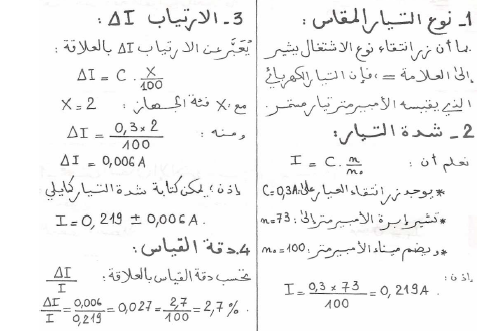 1- نوع التيار المقاس:
بما أن زر انتقاء نوع الاشتغال يشير
إلى العلامة = ، فإن التيار الكهربائي
الذي يقيسه الأمبير متر تيار مستمر.
2- شدة التيار:
نعلم أن : I = C . n/n₀
* يوجد زر انتقاء العيار على: C=0,3A
* تشير إبرة الأمبير متر إلى: n=73
* ويضم ميناء الأمبير متر: n₀=100
إذن:
I = 0,3 x 73 / 100 = 0,219A .
3- الارتياب ΔI :
يُعَبَّر عن الارتياب ΔI بالعلاقة :
ΔI = C . X/100
مع: X فئة الجهاز : X = 2
ومنه : ΔI = 0,3 x 2 / 100
ΔI = 0,006A
إذن ، يمكن كتابة شدة التيار كما يلي
I = 0,219 ± 0,006A .
4. دقة القياس:
نحسب دقة القياس بالعلاقة : ΔI/I
ΔI/I = 0,006/0,219 = 0,027 = 2,7/100 = 2,7 % .